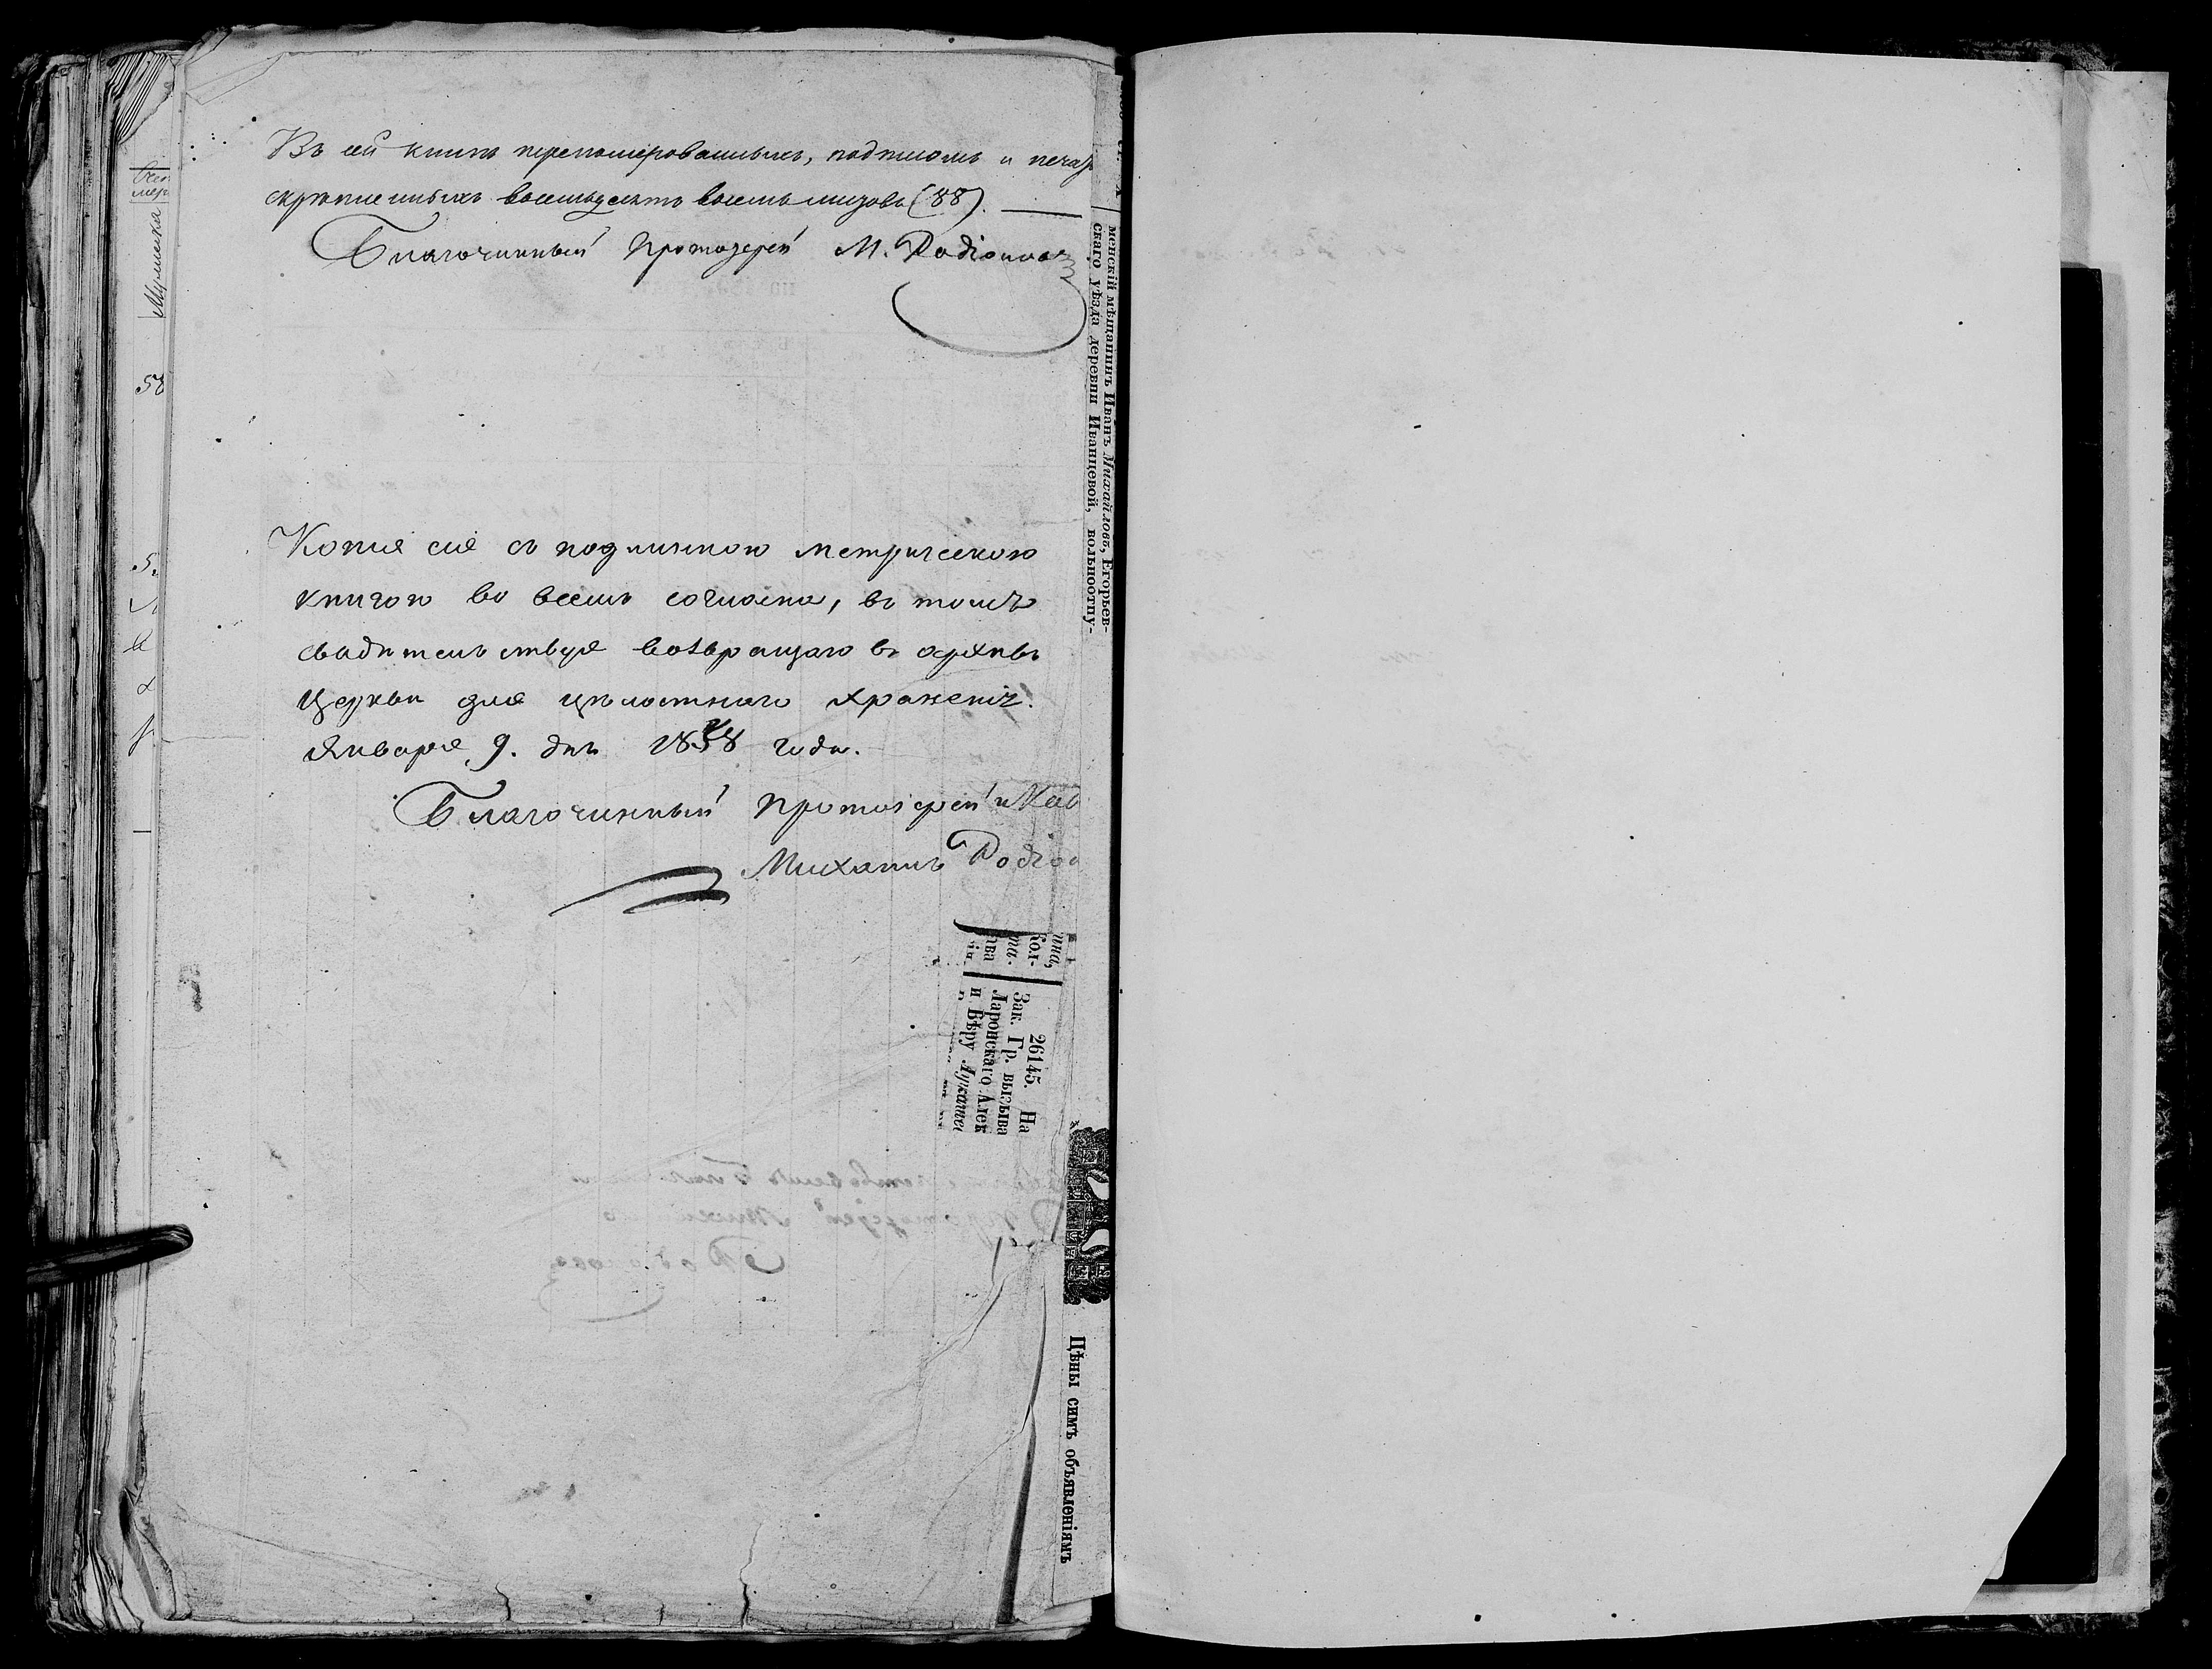 Въ сей книгѣ перенумерованныхъ, подписомъ и печа
скрѣпленныхъ восемьдесятъ восемь листовъ (88).
Благочинный Протоіерей М. Родіоновъ
Копія сія съ подлинною метрическою
книгою во всемъ согласна, въ томъ
свидѣтельствуя возвращаю въ архивъ
Церкви для цѣлостнаго храненія.
Января 9. дня 1858 года.
Благочинный Протоіерей и Кав
Михаилъ Родіо
менскій мѣщанинъ Иванъ Михайловъ, Егорьев-
скаго уѣзда деревни Иванцевой, вольноотпу-
26145. На
Зак. Гр. вызыва
Ларонскаго Алек
и Вѣру Лукаше
Цѣны симъ объявленіямъ